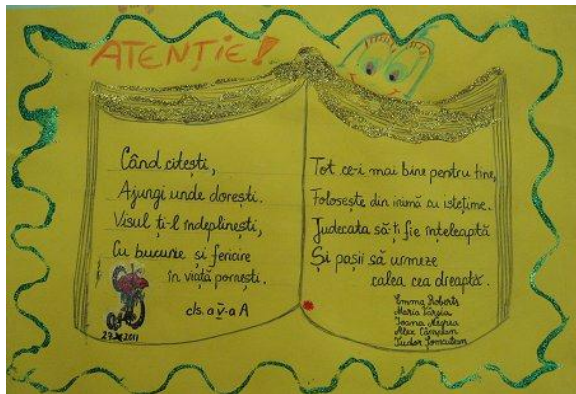 ATENȚIE!
Când citești,
Ajungi unde dorești.
Visul ți-l îndeplinești,
Cu bucurie și fericire
în viață pornești.
cls. a V-a A
Tot ce-i mai bine pentru tine,
Folosește din inimă cu istețime.
Judecata să-ți fie înțeleaptă
Și pașii să urmeze
calea cea dreaptă.
Emma Roberts
Maria
Ioana Negrea
Alex
Tudor